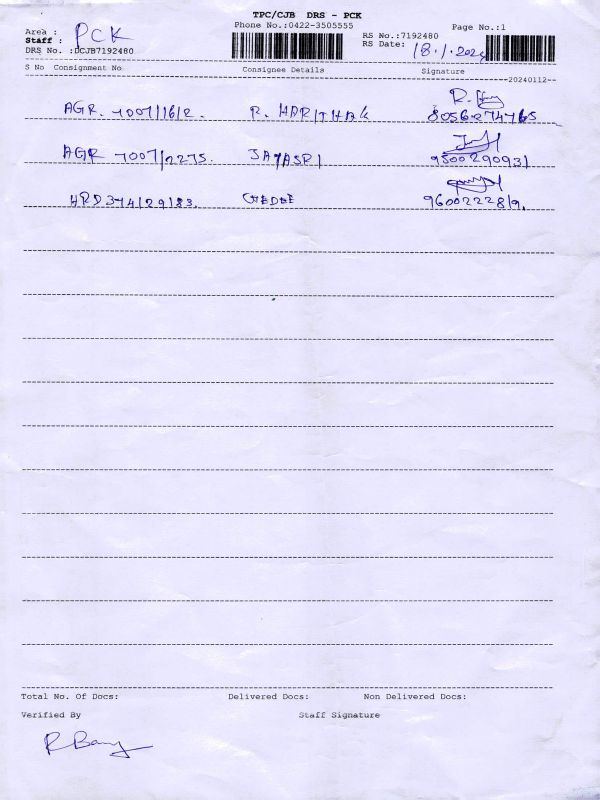 TPC/CJB DRS - PCK
Phone No.:0422-3505555 Page No.:1
Area : PCK
Staff :
RS No.:7192480
RS Date: 18.1.2024
DRS No. :DCJB7192480
S No Consignment No Consignee Details Signature
20240112
AGR. 7007/1612. R. HARITHAK 8056274765
AGR 7007/2275. JAYASRI 9500290931
HRD374/29/83. 9600222819.
Total No. Of Docs: Delivered Docs: Non Delivered Docs:
Verified By Staff Signature